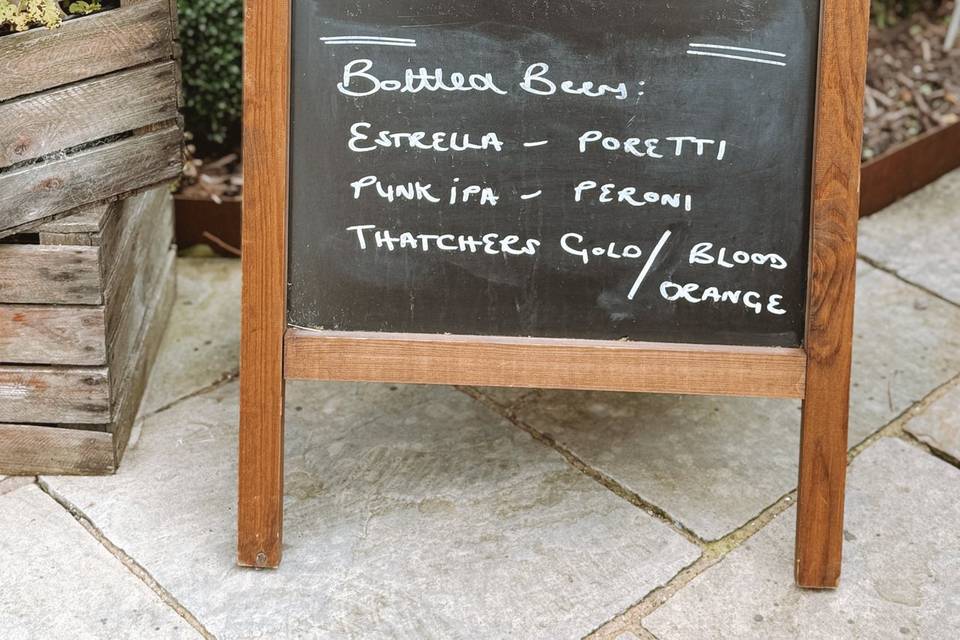 Bottled Beers:
ESTRELLA - PORETTI
PUNK iPA - PERONI
THATCHERS GOLD / BLOOD
ORANGE